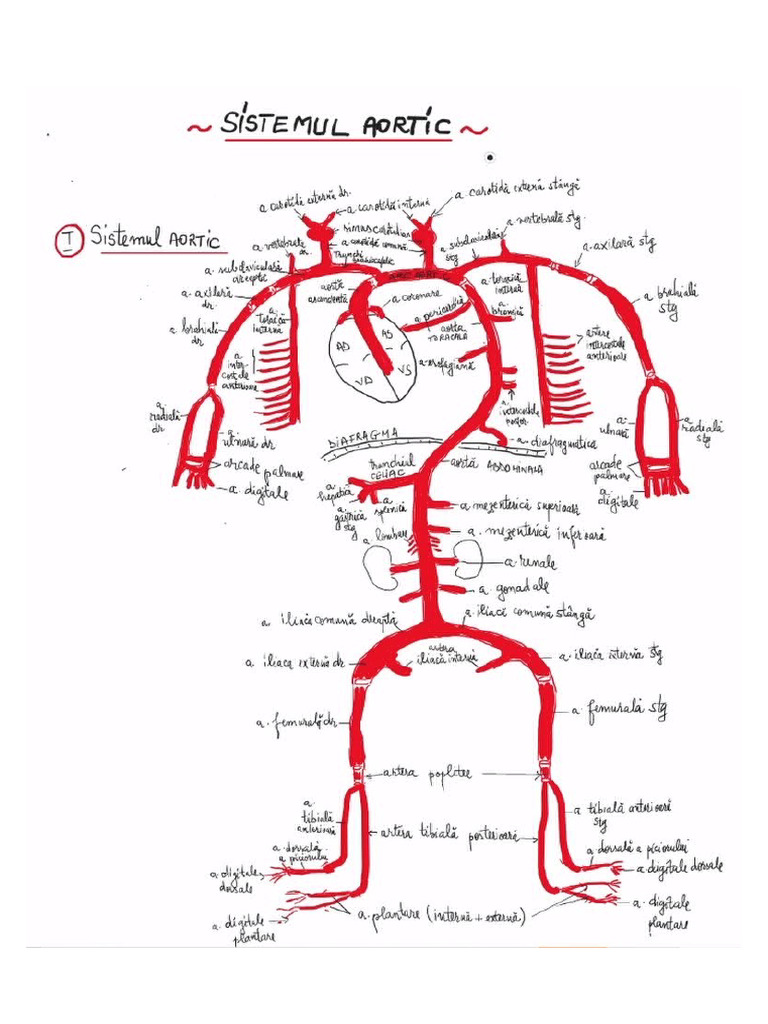 ~ SISTEMUL AORTIC ~
I Sistemul AORTIC
a. carotidă externă dr.
a. carotidă internă
a. carotidă externă stângă
sinus carotidian
a. carotidă comună
Trunchi
a. vertebrală
dr.
a. subclaviculară
stg
a. vertebrală stg.
a. axilară stg
a. subclaviculară
dreaptă
a. axilară
dr.
a. brahială
dr
a. brahială
stg
aorta
ascendentă
ARC AORTIC
a. coronare
a. pericardică
aorta
TORACALĂ
a. esofagiană
a.
toracică
internă
a. toracică
internă
a.
bronsică
AD
AS
VD
VS
a.
inter-
costale
anterioare
artere
intercostale
anterioare
a.
intercostale
poster.
a.
radială
dr
a.
ulnară dr
arcade palmare
a. digitale
a.
ulnară
a.
radială
stg
arcade
palmare
a.
digitale
DIAFRAGMA
a. diafragmatica
trunchiul
CELIAC
aortă ABDOMINALA
a.
hepatică
a.
gastrică
stg
a.
splenică
a. lombare
a. mezenterică superioară
a. mezenterică inferioară
a. renale
a. gonadale
a. iliaca comună dreaptă
a. iliaci comună stângă
artera
iliacă internă
a. iliaca externă dr
a. iliaca externă stg
a. femurală dr
a. femurală stg
artera poplitee
a.
tibială
anterioară
artera tibială posterioari
a tibială anterioari
stg
a. dorsală
a piciorului
a. dorsală a piciorului
a. digitale
dorsale
a digitale dorsale
a. plantare (internă + externă)
a. digitele
plantare
a. digitale
plantare